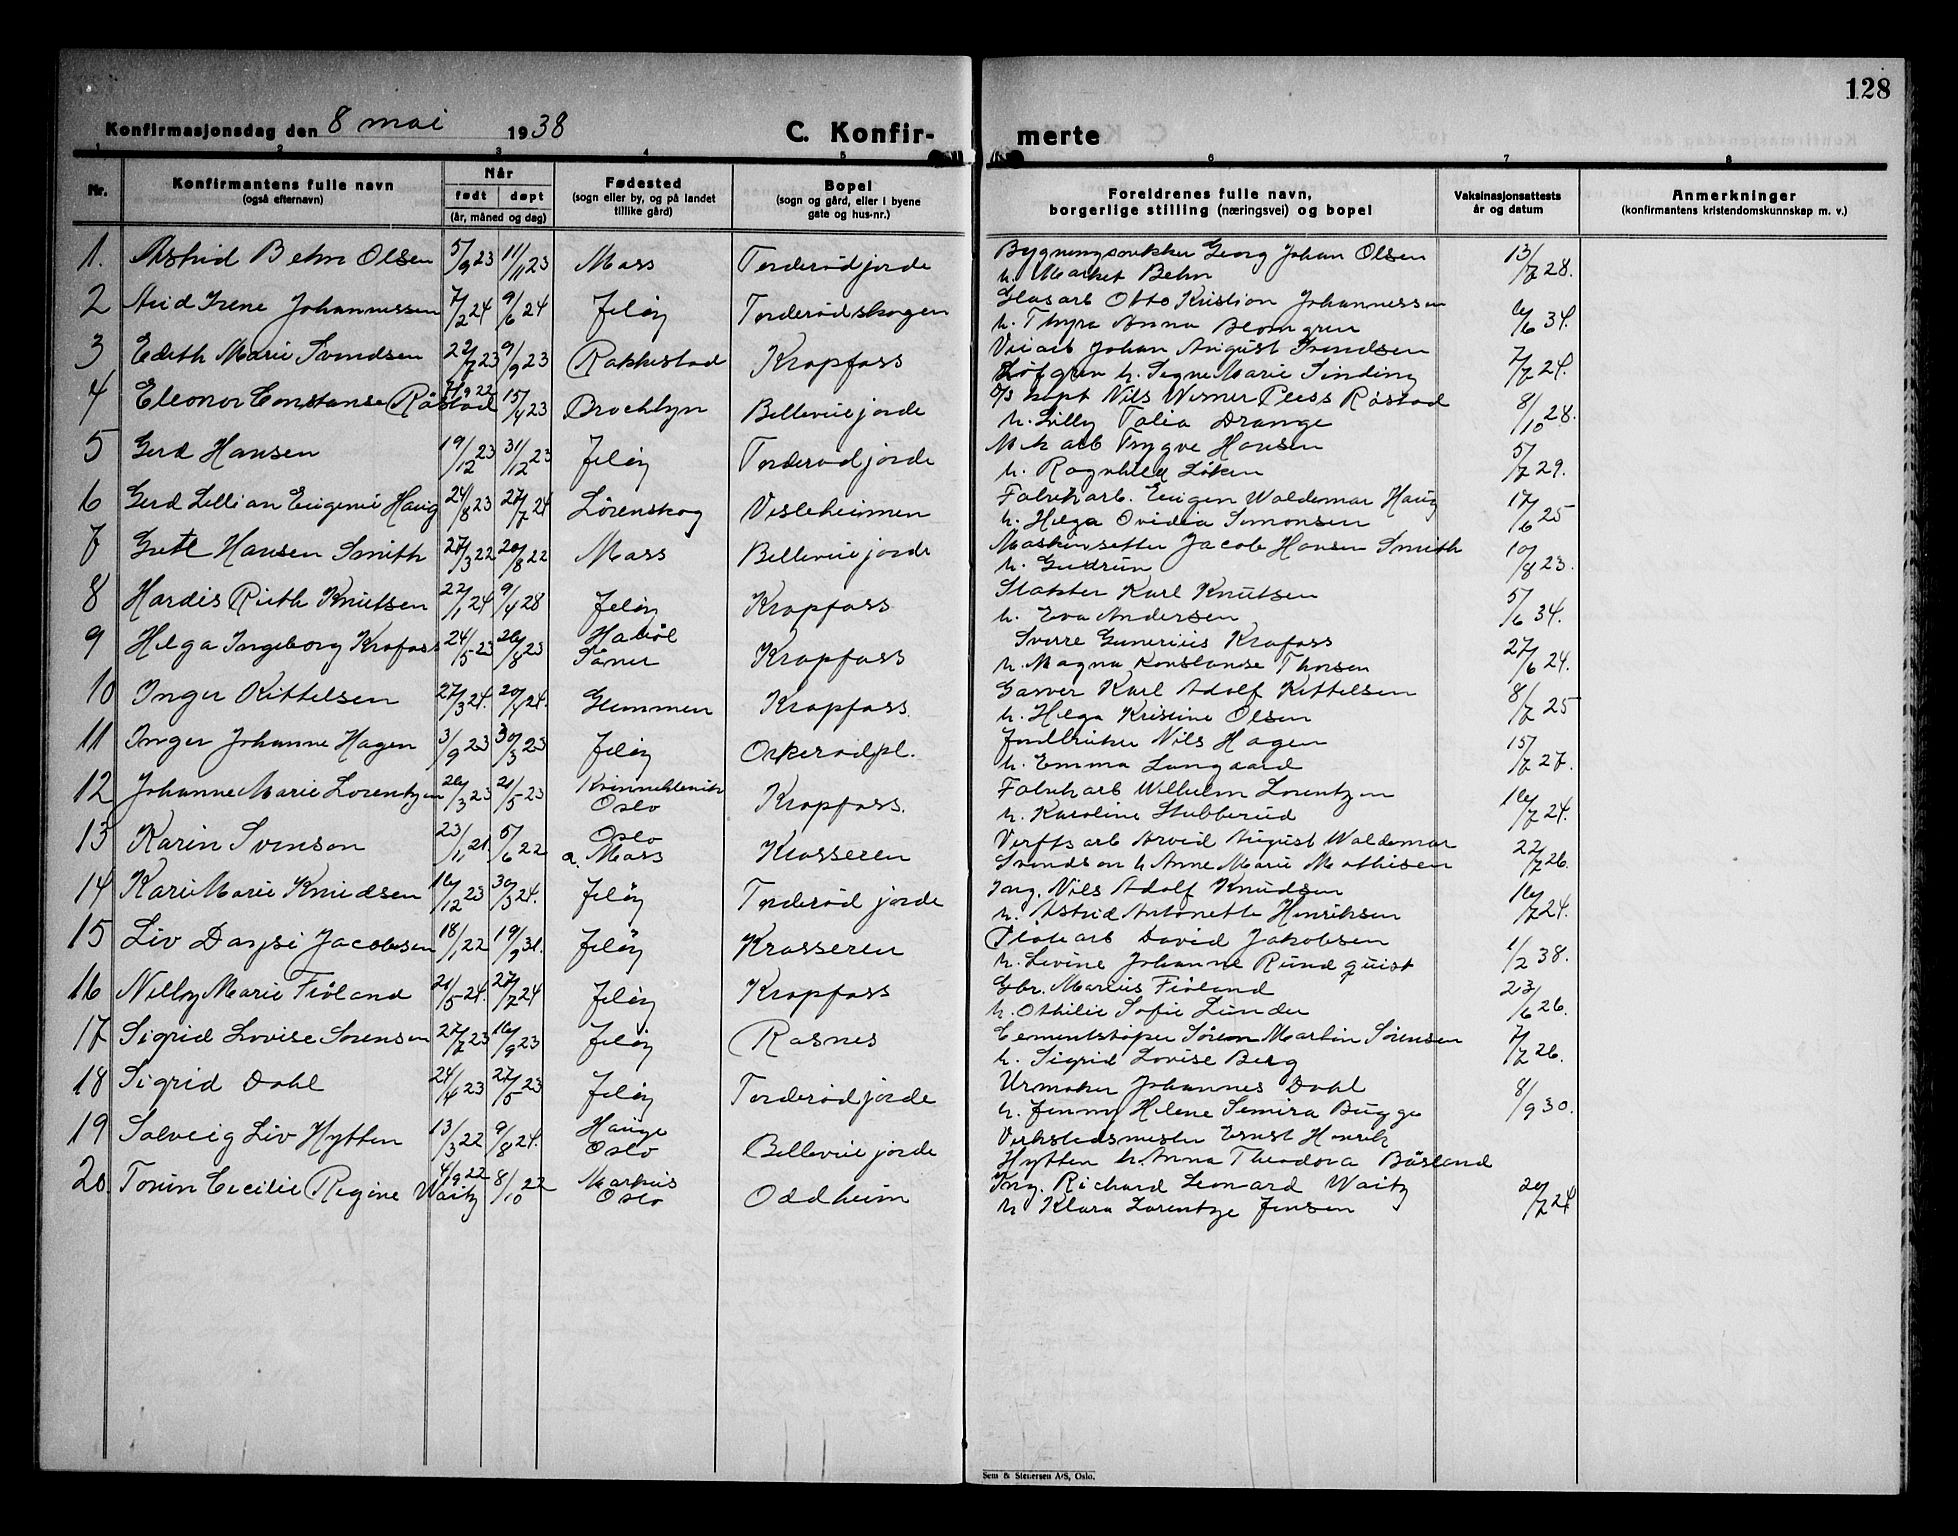 128
Konfirmasjonsdag den 8 mai 1938
C. Konfir- merte
1 2 3 4 5 6 7 8
Nr.
Konfirmantens fulle navn
(også efternavn)
Når
født døpt
(år, måned og dag)
Fødested
(sogn eller by, og på landet
tillike gård)
Bopel
(sogn og gård, eller i byene
gate og hus-nr.)
Foreldrenes fulle navn,
borgerlige stilling (næringsvei) og bopel
Vaksinasjonsattests
år og datum
Anmerkninger
(konfirmantens kristendomskunnskap m. v.)
1. Astrid Behn Olsen 5/9 23 11/11 23 Moss Torderødjorde Georg Johan Olsen 13/7 28.
h. Market Behn
2 Irene Johannessen 7/2 24 9/6 24 Jeløy Torderødskogen Glasarb Otto Kristian Johannessen 16/6 34.
h. Thyra Anna Blomgren
3 Edith Marie Svendsen 22/7 23 9/9 23 Rakkestad Krapfoss Veiarb Johan August Svendsen 7/7 24.
Løfgren h. Signe Marie Sinding
4 Eleonor Constanse Røstad 7/9 22 15/4 23 Brocklyn Bellevuejorde Nils Werner Pless Røstad 8/10 28.
h. Lilly Talia Drange
5 Gerd Hansen 19/12 23 31/12 23 Jeløy Torderødjorde Mek arb Trygve Hansen 5/7 29.
h. Ragnhild Løken
6 Gerd Lillian Eugenie Haug 24/8 23 27/7 24 Lörenskog Vesleheimen Fabrikarb. Eugen Waldemar Haug 17/6 25
h. Helga Ovidia Simonsen
7 Grete Hansen Smith 27/3 22 20/8 22 Moss Bellevuejorde Maskinsetter Jacob Hansen Smith 10/8 23.
h. Gudrun
8 Hardis Ruth Knutsen 22/1 24 9/4 28 Jeløy Krapfoss Slakter Karl Knutsen 5/6 34.
h. Eva Andersen
9 Helga Ingeborg Krafoss 24/5 23 26/8 23 Såner Krapfoss Sverre Gunerius Krafoss 27/6 24.
h. Magna Konstanse Thorsen
10 Inger Kittelsen 27/3 24. 20/4 24. Glemmen Krapfoss. Garver Karl Adolf Kittelsen 8/7 25
h. Helga Kristine Olsen
11 Inger Johanne Hagen 3/9 23 30/3 23 Jeløy Orkerødpl. Jordbruker Nils Hagen 15/7 27.
h. Emma Langaard
12 Johanne Marie Lorentzen 26/3 23 21/5 23 Kvinneklinikk
Oslo Krapfoss. Fabrikarb Wilhelm Lorentzen 16/7 24.
h. Karoline Stubberud
13 Karin Svenson 23/1 21 5/6 22 Oslo
a. Moss Krosseren Verftsarb Arvid August Waldemar 22/7 26.
Svendson h Anne Marie Mathisen
14 Kari Marie Knudsen 16/12 23 30/3 24. Jeløy Torderødjorde Ing. Nils Adolf Knudsen 16/7 24.
h. Astrid Antonette Henriksen
15 Liv Jacobsen 18/1 22 19/9 31. Jeløy Krosseren David Jakobsen 1/2 38.
h. Levine Johanne Rundquist
16 Nelly Marie Fiøland 21/5 24. 27/7 24 Jeløy Krapfoss Gbr. Marius Fiøland 23/6 26.
h. Othilie Sofie Lunder
17 Sigrid Lovise Sørensen 27/7 23 16/9 23 Jeløy Rasnes Cementstøper Sören Martin Sørensen 7/7 26.
h. Sigrid Lovise Berg
18 Sigrid Dahl 24/4 23 27/5 23 Jeløy Torderødjorde Urmaker Johannes Dahl 8/9 30.
h. Jenny Helene Semira Bugge
19 Solveig Liv Hytten 13/3 22 9/8 24. Hauge
Oslo Bellevuejorde Verkstedsmester Ernst Henrik
Hytten h. Anna Theodora Båsland
20 Cecilie Regine Waitz 4/9 22 8/10 22 Markus
Oslo Oddheim Ing. Richard Leonard Waitz 20/7 24
h Klara Lorentze Jensen
Sem & Stenersen A/S, Oslo.